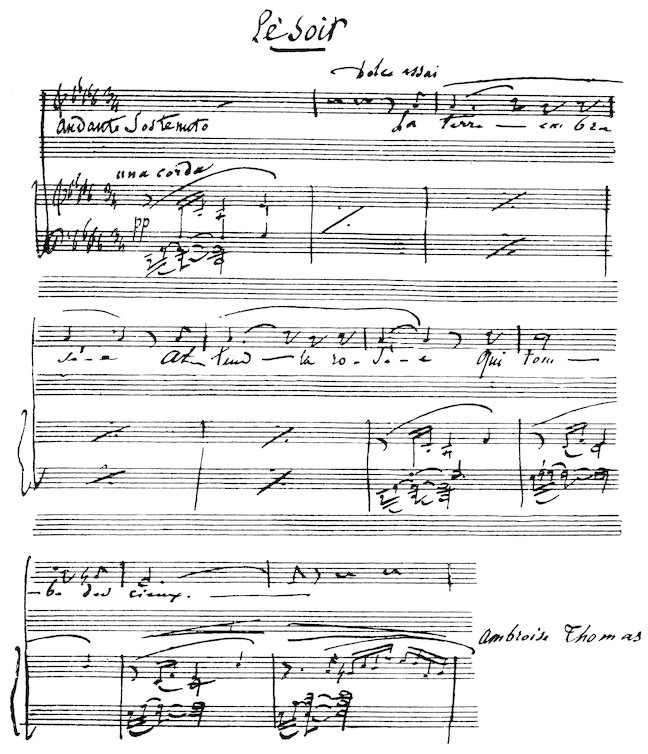 Le Soir
Dolce assai
Andante Sostenuto La terre — em bra
una corda
pp
sé-e At-tend — la ro-sé-e Qui tom —
-be des cieux. —
Ambroise Thomas